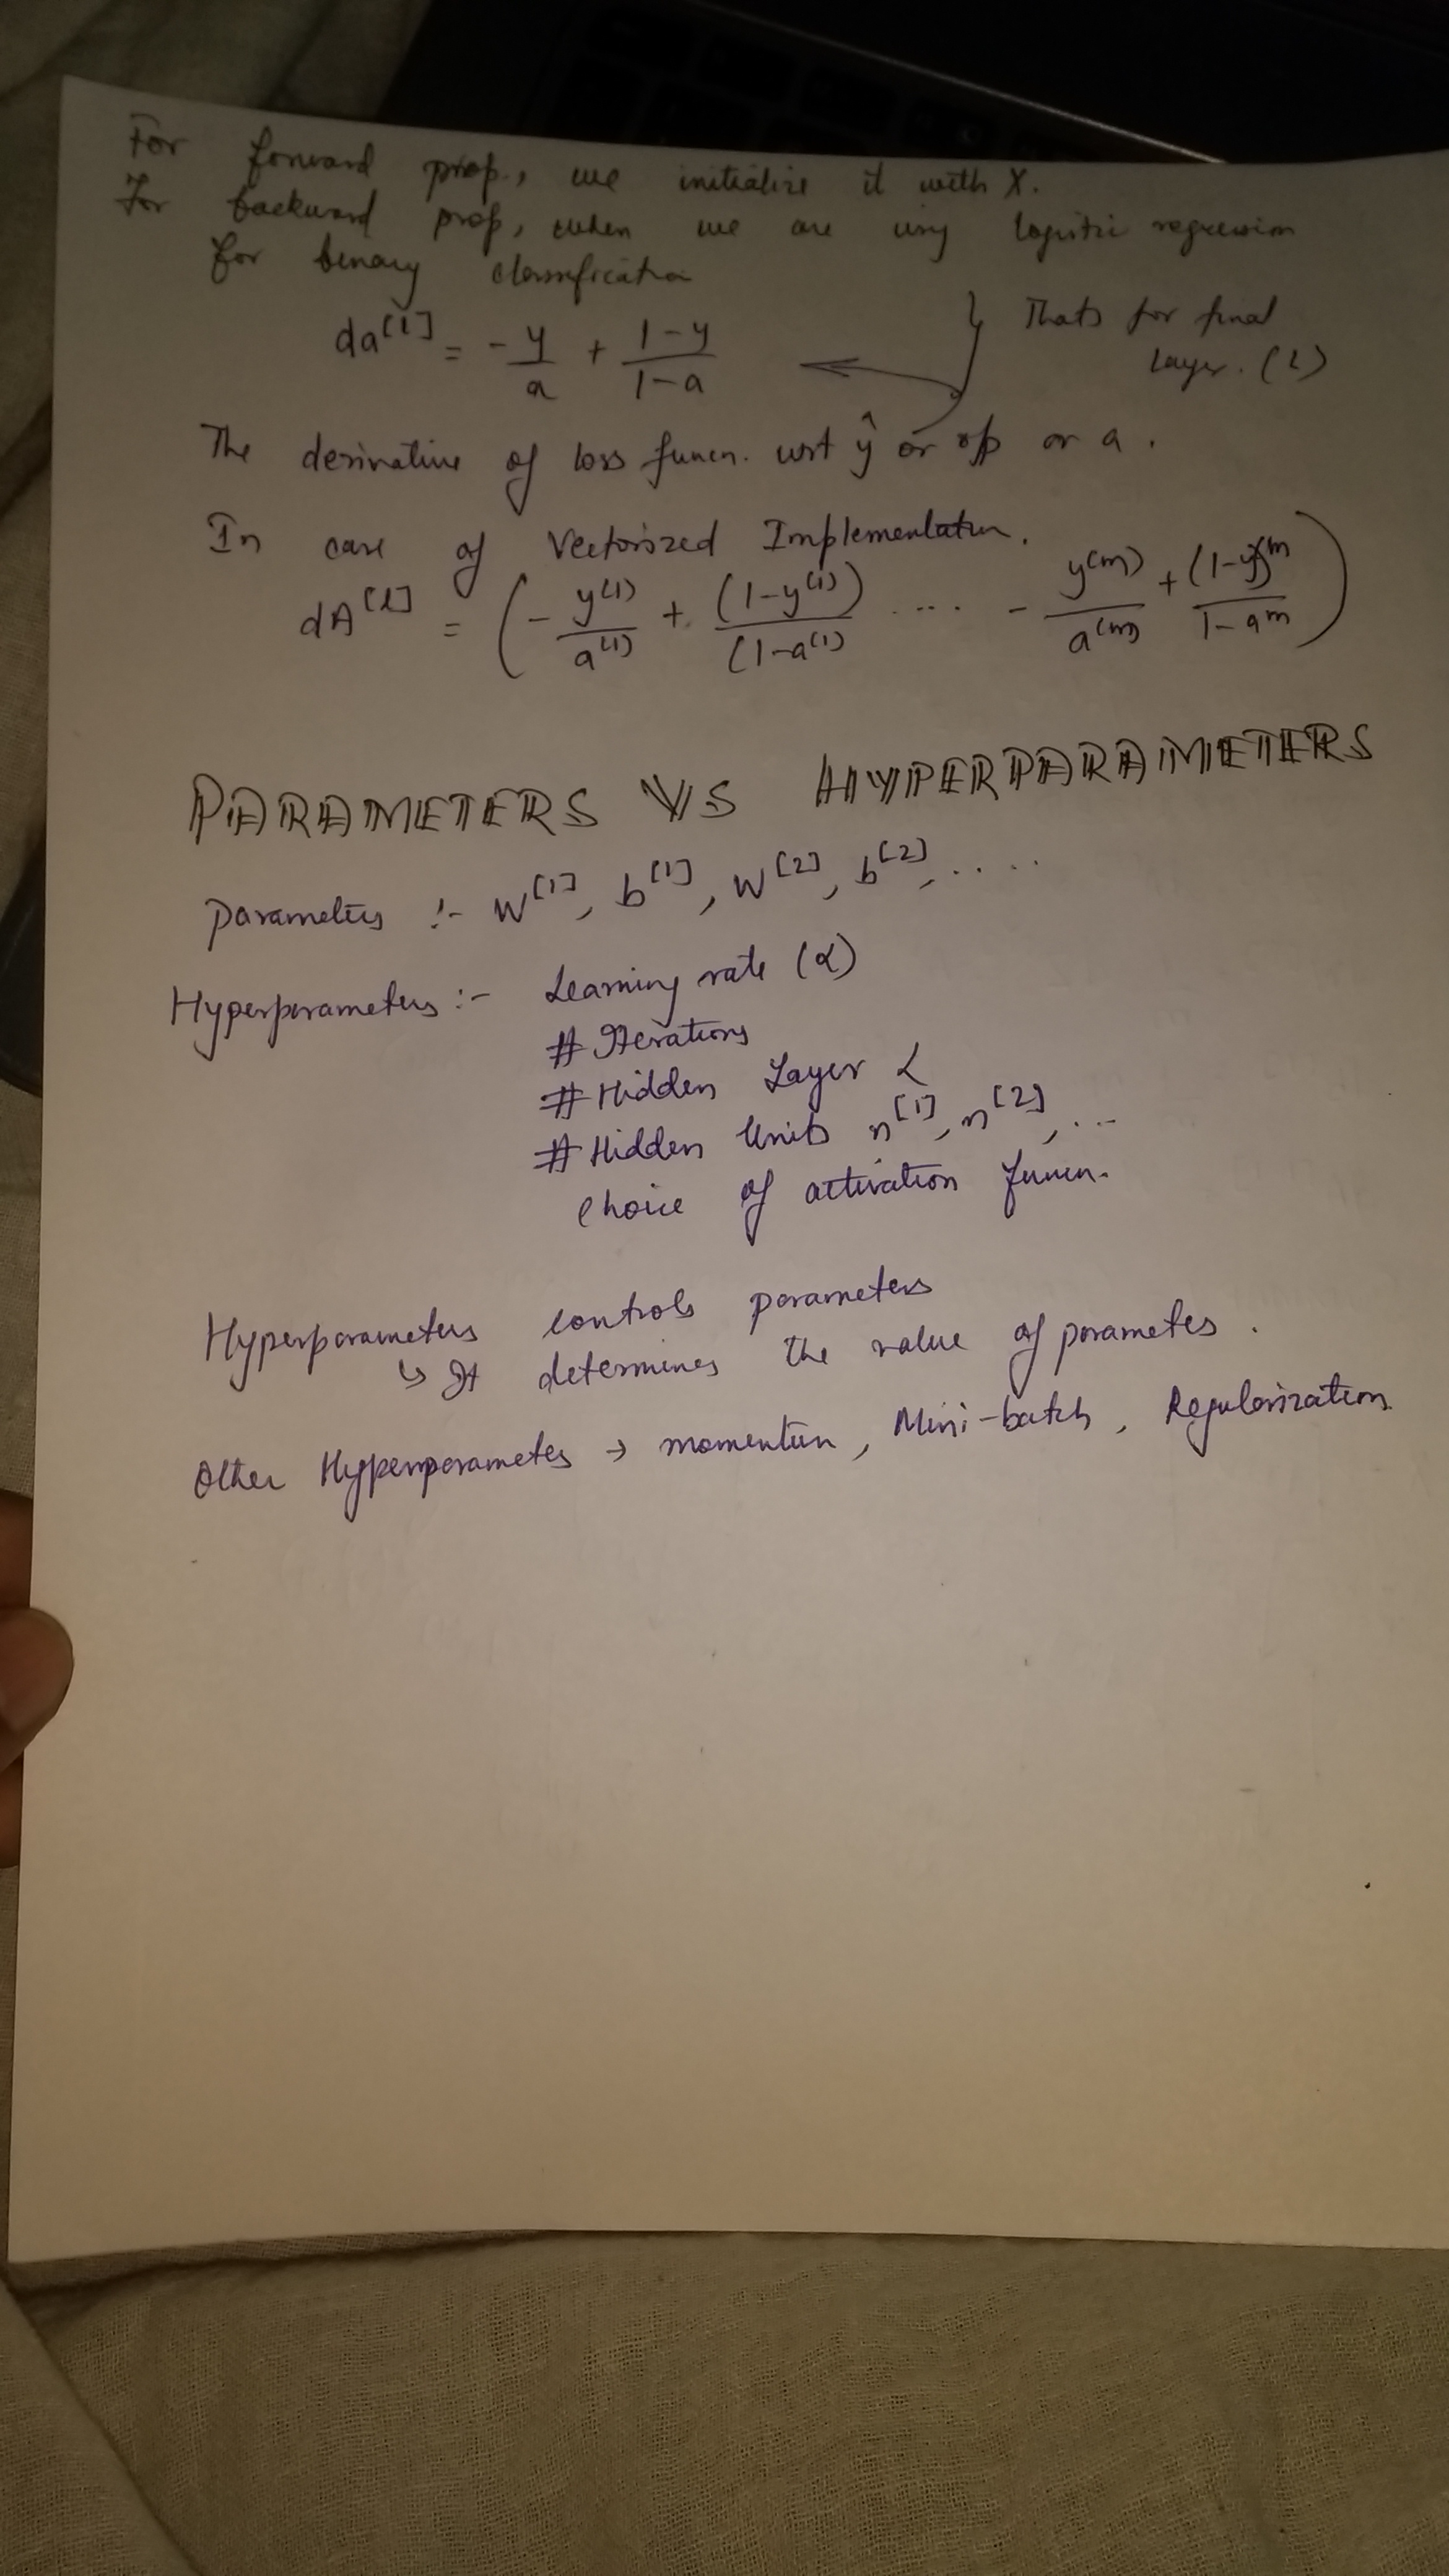 For forward prop., we initialize it with X.
For backward prop, when we are using logistic regression
for binary classification
da[l] = - y/a + (1-y)/(1-a)
Thats for final
layer. (L)
The derivative of loss funcn. wrt ŷ or o/p or a.
In case of Vectorized Implementation.
dA[l] = ( - y(1)/a(1) + (1-y(1))/(1-a(1)) .... - y(m)/a(m) + (1-y)m/1-am )
PARAMETERS VS HYPERPARAMETERS
Parameters :- W[1], b[1], W[2], b[2], ....
Hyperparameters :- Learning rate (α)
# Iterations
# Hidden Layer L
# Hidden Units n[1], n[2], ...
Choice of activation funcn.
Hyperparameters controls parameters
↳ It determines the value of parametes.
Other Hyperparametes → momentum, Mini-batch, Regularization